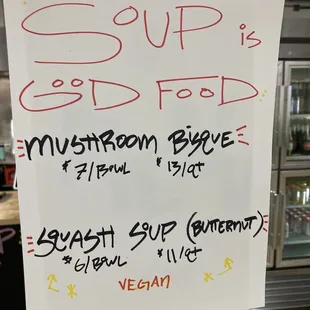 SOUP is
GOOD FOOD
MUSHROOM BISQUE
$7/BOWL $13/QT
SQUASH SOUP (BUTTERNUT)
$6/BOWL $11/QT
VEGAN